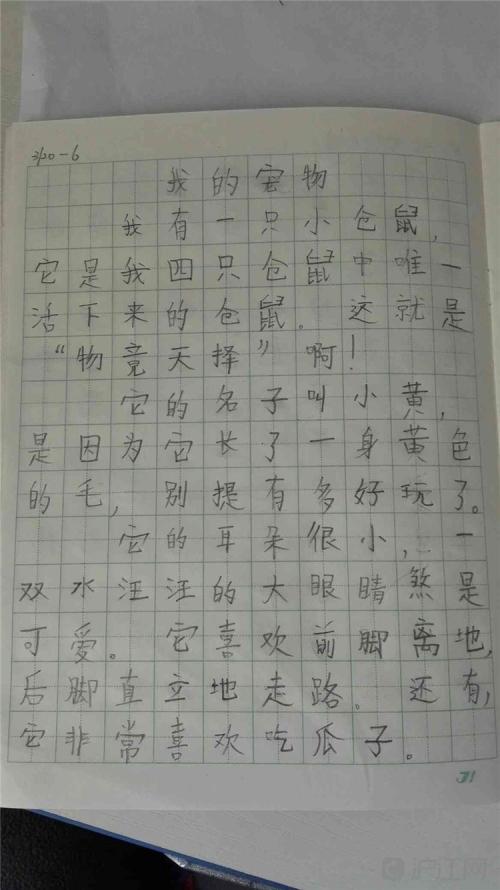 3/20-6
我的宠物
我有一只小仓鼠，
它是我四只仓鼠中唯一
活下来的仓鼠。这就是
“物竟天择”啊！
它的名子叫小黄，
是因为它长了一身黄色
的毛，别提有多好玩了。
它的耳朵很小，一
双水汪汪的大眼睛煞是
可爱。它喜欢前脚离地，
后脚直立地走路。还有，
它非常喜欢吃瓜子。
31
沪江网